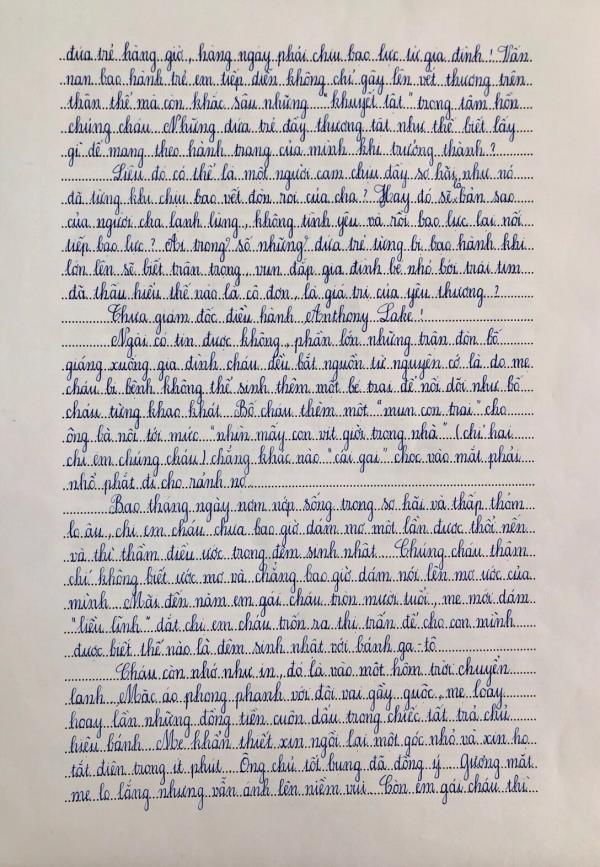 đứa trẻ hàng giờ, hàng ngày phải chịu bạo lực từ gia đình! Vấn
nạn bạo hành trẻ em tiếp diễn không chỉ gây lên vết thương trên
thân thể mà còn khắc sâu những "khuyết tật" trong tâm hồn
chúng cháu. Những đứa trẻ đầy thương tật như thế biết lấy
gì để mang theo hành trang của mình khi trưởng thành?
Liệu đó có thể là một người cam chịu đầy sợ hãi như nó
đã từng khi chịu bao vết đòn roi của cha? Hay đó sẽ là bản sao
của người cha lạnh lùng, không tình yêu và rồi bạo lực lại nối
tiếp bạo lực? Ai trong? số những? đứa trẻ từng bị bạo hành khi
lớn lên sẽ biết trân trọng, vun đắp gia đình bé nhỏ bởi trái tim
đã thấu hiểu thế nào là cô đơn, là giá trị của yêu thương?
Thưa giám đốc điều hành Anthony Lake!
Ngài có tin được không, phần lớn những trận đòn bố
giáng xuống gia đình cháu đều bắt nguồn từ nguyên cớ là do mẹ
cháu bị bệnh không thể sinh thêm một bé trai để nối dõi như bố
cháu từng khao khát. Bố cháu thèm một "mụn con trai" cho
ông bà nội tới mức "nhìn mấy con vịt giời trong nhà" (chỉ hai
chị em chúng cháu) chẳng khác nào "cái gai" chọc vào mắt phải
nhổ phắt đi cho rảnh nợ.
Bao tháng ngày nơm nớp sống trong sợ hãi và thấp thỏm
lo âu, chị em cháu chưa bao giờ dám mơ một lần được thổi nến
và thì thầm điều ước trong đêm sinh nhật. Chúng cháu thậm
chí không biết ước mơ và chẳng bao giờ dám nói lên mơ ước của
mình. Mãi đến năm em gái cháu tròn mười tuổi, mẹ mới dám
"liều lĩnh" dắt chị em cháu trốn ra thị trấn để cho con mình
được biết thế nào là đêm sinh nhật với bánh ga-tô.
Cháu còn nhớ như in, đó là vào một hôm trời chuyển
lạnh. Mặc áo phong phanh với đôi vai gầy guộc, mẹ loay
hoay lần những đồng tiền cuộn dấu trong chiếc tất trả chủ
hiệu bánh. Mẹ khẩn thiết xin ngồi lại một góc nhỏ và xin họ
tắt điện trong ít phút. Ông chủ tốt bụng đã đồng ý. Gương mặt
mẹ lo lắng nhưng vẫn ánh lên niềm vui. Còn em gái cháu thì